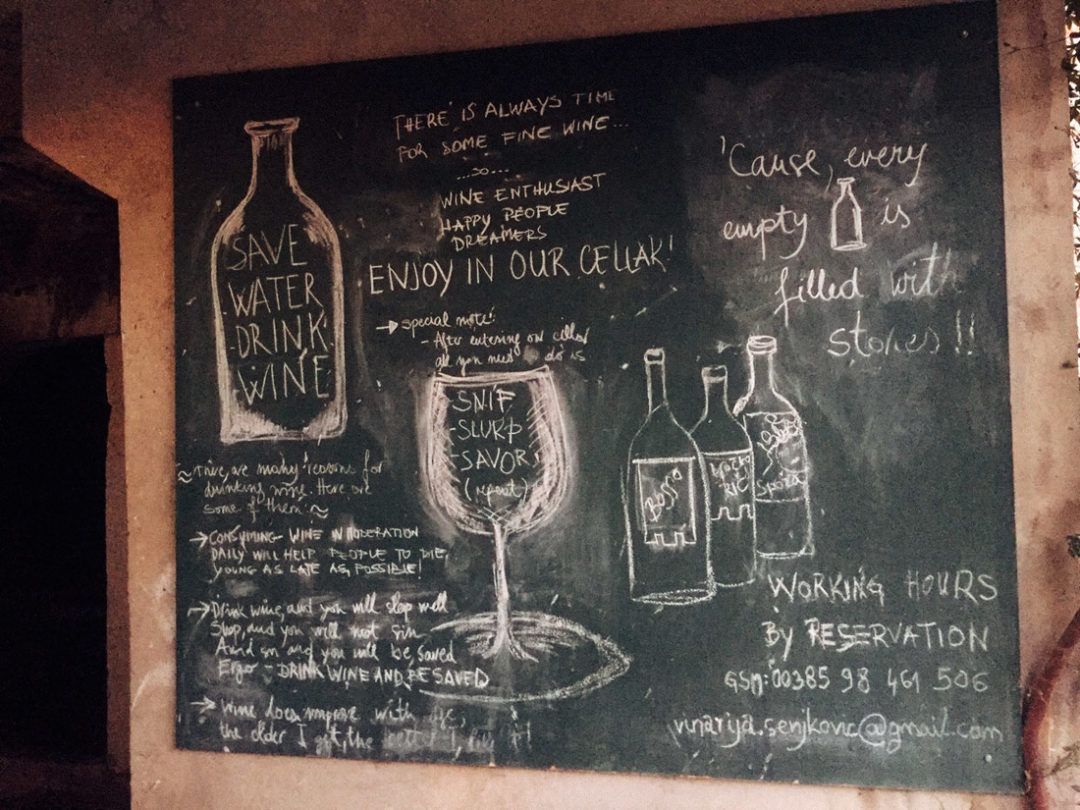 SAVE
WATER
DRINK
WINE
THERE IS ALWAYS TIME
FOR SOME FINE WINE...
...SO...
WINE ENTHUSIAST
HAPPY PEOPLE
DREAMERS
ENJOY IN OUR CELLAR!
→ Special note:
- After entering our cellar
all you need to do is
- SNIF
- SLURP
- SAVOR
(repeat)
'Cause, every
empty is
filled with
stories!!
≈ There are many reasons for
drinking wine. Here are
some of them: ≈
→ CONSUMING WINE IN MODERATION
DAILY WILL HELP PEOPLE TO DIE
YOUNG AS LATE AS POSSIBLE!
→ Drink wine, and you will sleep well
Sleep, and you will not sin
And you will be saved
Ergo - DRINK WINE AND BE SAVED
→ Wine does improve with age,
the older I get, the better I
Bossa
Spoza
WORKING HOURS
By RESERVATION
GSM: 00385 98 461 506
vinarija.senjkovic@gmail.com